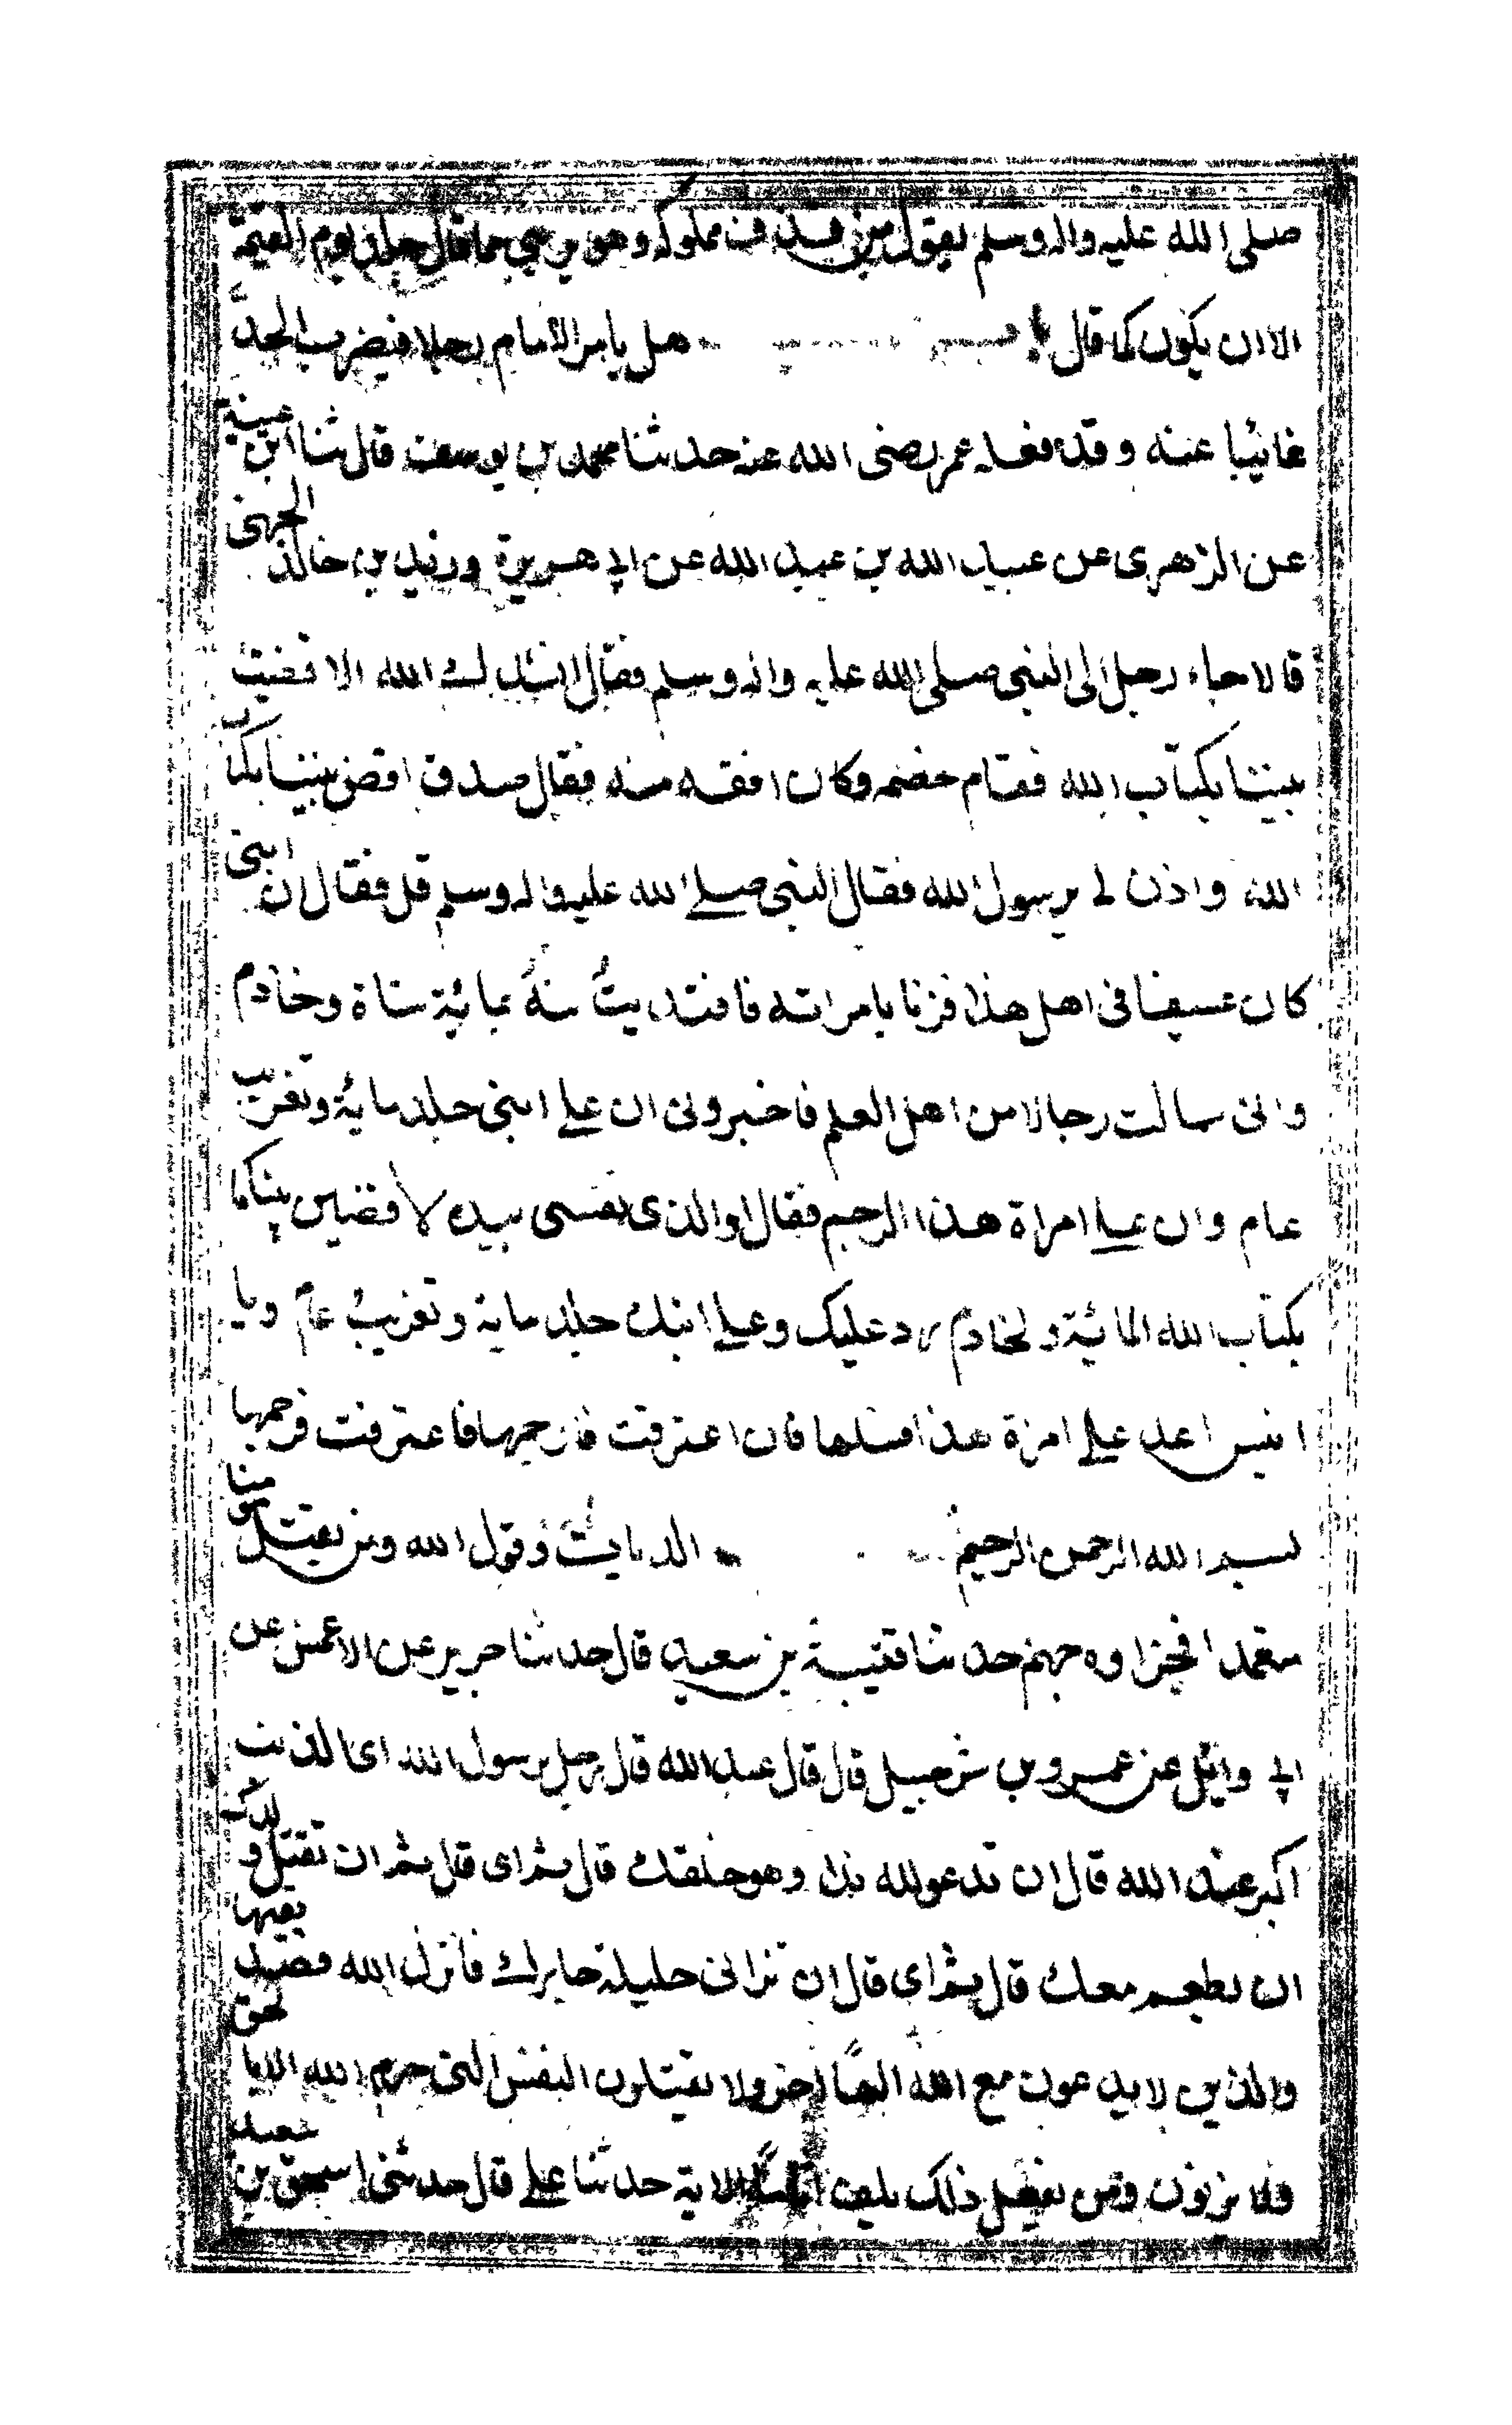 صلى الله عليه واله وسلم يقول من قذف مملوكه وهو برىء مما قال جلد يوم القيمة
الا ان يكون كما قال هل يامر الامام رجلا فيضرب الحد
غائبا عنه وقد فعله عمر رضى الله عنه حدثنا محمد بن يوسف قال ثنا ابن عيينة
عن الزهرى عن عبيد الله بن عبد الله عن ابى هريرة وزيد بن خالد الجهنى
قالا جاء رجل الى النبى صلى الله عليه واله وسلم فقال انشدك الله الا قضيت
بيننا بكتاب الله فقام خصمه وكان افقه منه فقال صدق اقض بيننا بكتاب
الله واذن لى يرسول الله فقال النبى صلى الله عليه واله وسلم قل فقال ان ابنى
كان عسيفا فى اهل هذا فزنا بامراته فافتديت منه بمائة شاة وخادم
وانى سالت رجالا من اهل العلم فاخبرونى ان على ابنى جلد مائة وتغريب
عام وان على امراة هذا الرجم فقال والذى نفسى بيده لأقضين بينكما
بكتاب الله المائة ولخادم رد عليك وعلى ابنك جلد ماية وتغريب عام ويا
انيس اغد على امراة هذا فسلها فان اعترفت فارجمها فاعترفت فرجمها
بسم الله الرحمن الرحيم الديات وقول الله ومن يقتل مومنا
متعمدا فجزاوه جهنم حدثنا قتيبة بن سعيد قال حدثنا جرير عن الاعمش عن
ابى وايل عن عمرو بن شرحبيل قال قال عبد الله قال رجل يرسول الله اى الذنب
اكبر عند الله قال ان تدعو لله ندا وهو خلقك قال ثم اى قال ثم ان تقتل ولدك
ان يطعم معك قال ثم اى قال ان تزانى حليلة جارك فانزل الله تصديقها
والذين لا يدعون مع الله الها اخر ولا يقتلون النفس التى حرم الله الا بالحق
ولا يزنون ومن يفعل ذلك يلق اثاما الاية حدثنا على قال حدثنى اسحق بن سعيد